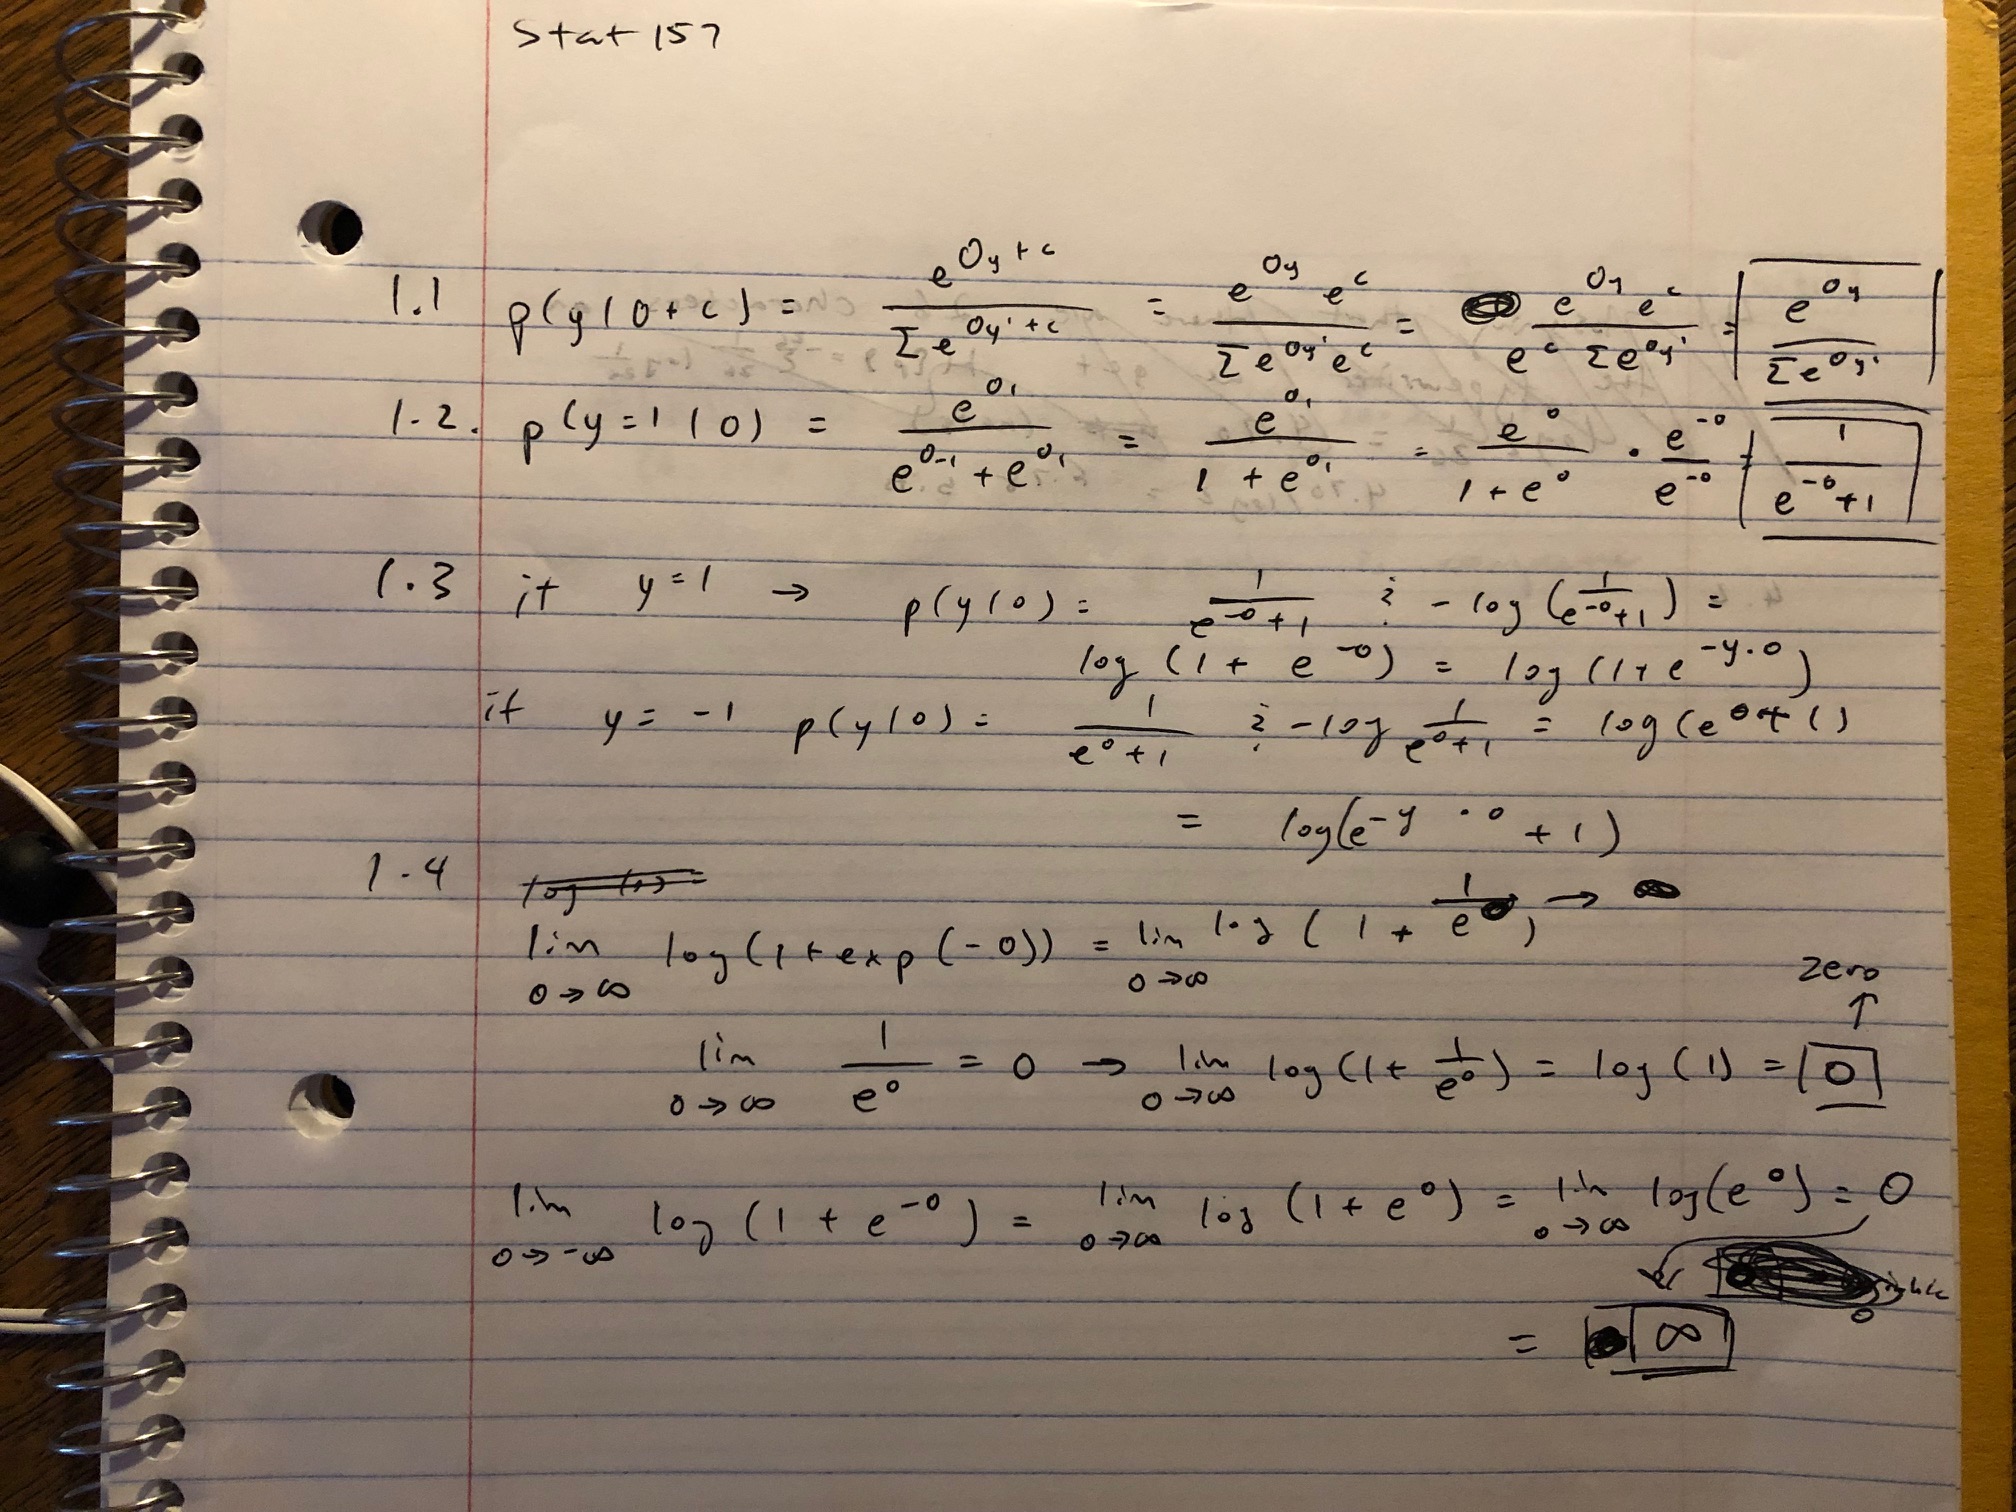 Stat 157
1.1 p(y|θ+c) = e^(θy+c) / Σe^(θy'+c) = e^θy e^c / Σe^θy' e^c = e^θy e^c / e^c Σe^θy' = e^θy / Σe^θy'
1.2. p(y=1|θ) = e^θ1 / (e^θ-1 + e^θ1) = e^θ1 / (1 + e^θ1) = e^θ / (1+e^θ) · e^-θ / e^-θ = 1 / (e^-θ+1)
1.3 if y=1 → p(y|θ) = 1 / (e^-θ+1) ; -log(1/(e^-θ+1)) =
log(1+e^-θ) = log(1+e^(-y·θ))
if y=-1 p(y|θ) = 1 / (e^θ+1) ; -log 1/(e^θ+1) = log(e^θ+1)
= log(e^(-y·θ)+1)
1.4
lim θ→∞ log(1+exp(-θ)) = lim θ→∞ log(1 + 1/e^θ) →
zero
↑
lim θ→∞ 1/e^θ = 0 → lim θ→∞ log(1+1/e^θ) = log(1) = 0
lim θ→-∞ log(1+e^-θ) = lim θ→∞ log(1+e^θ) = lim θ→∞ log(e^θ) = θ
= ∞